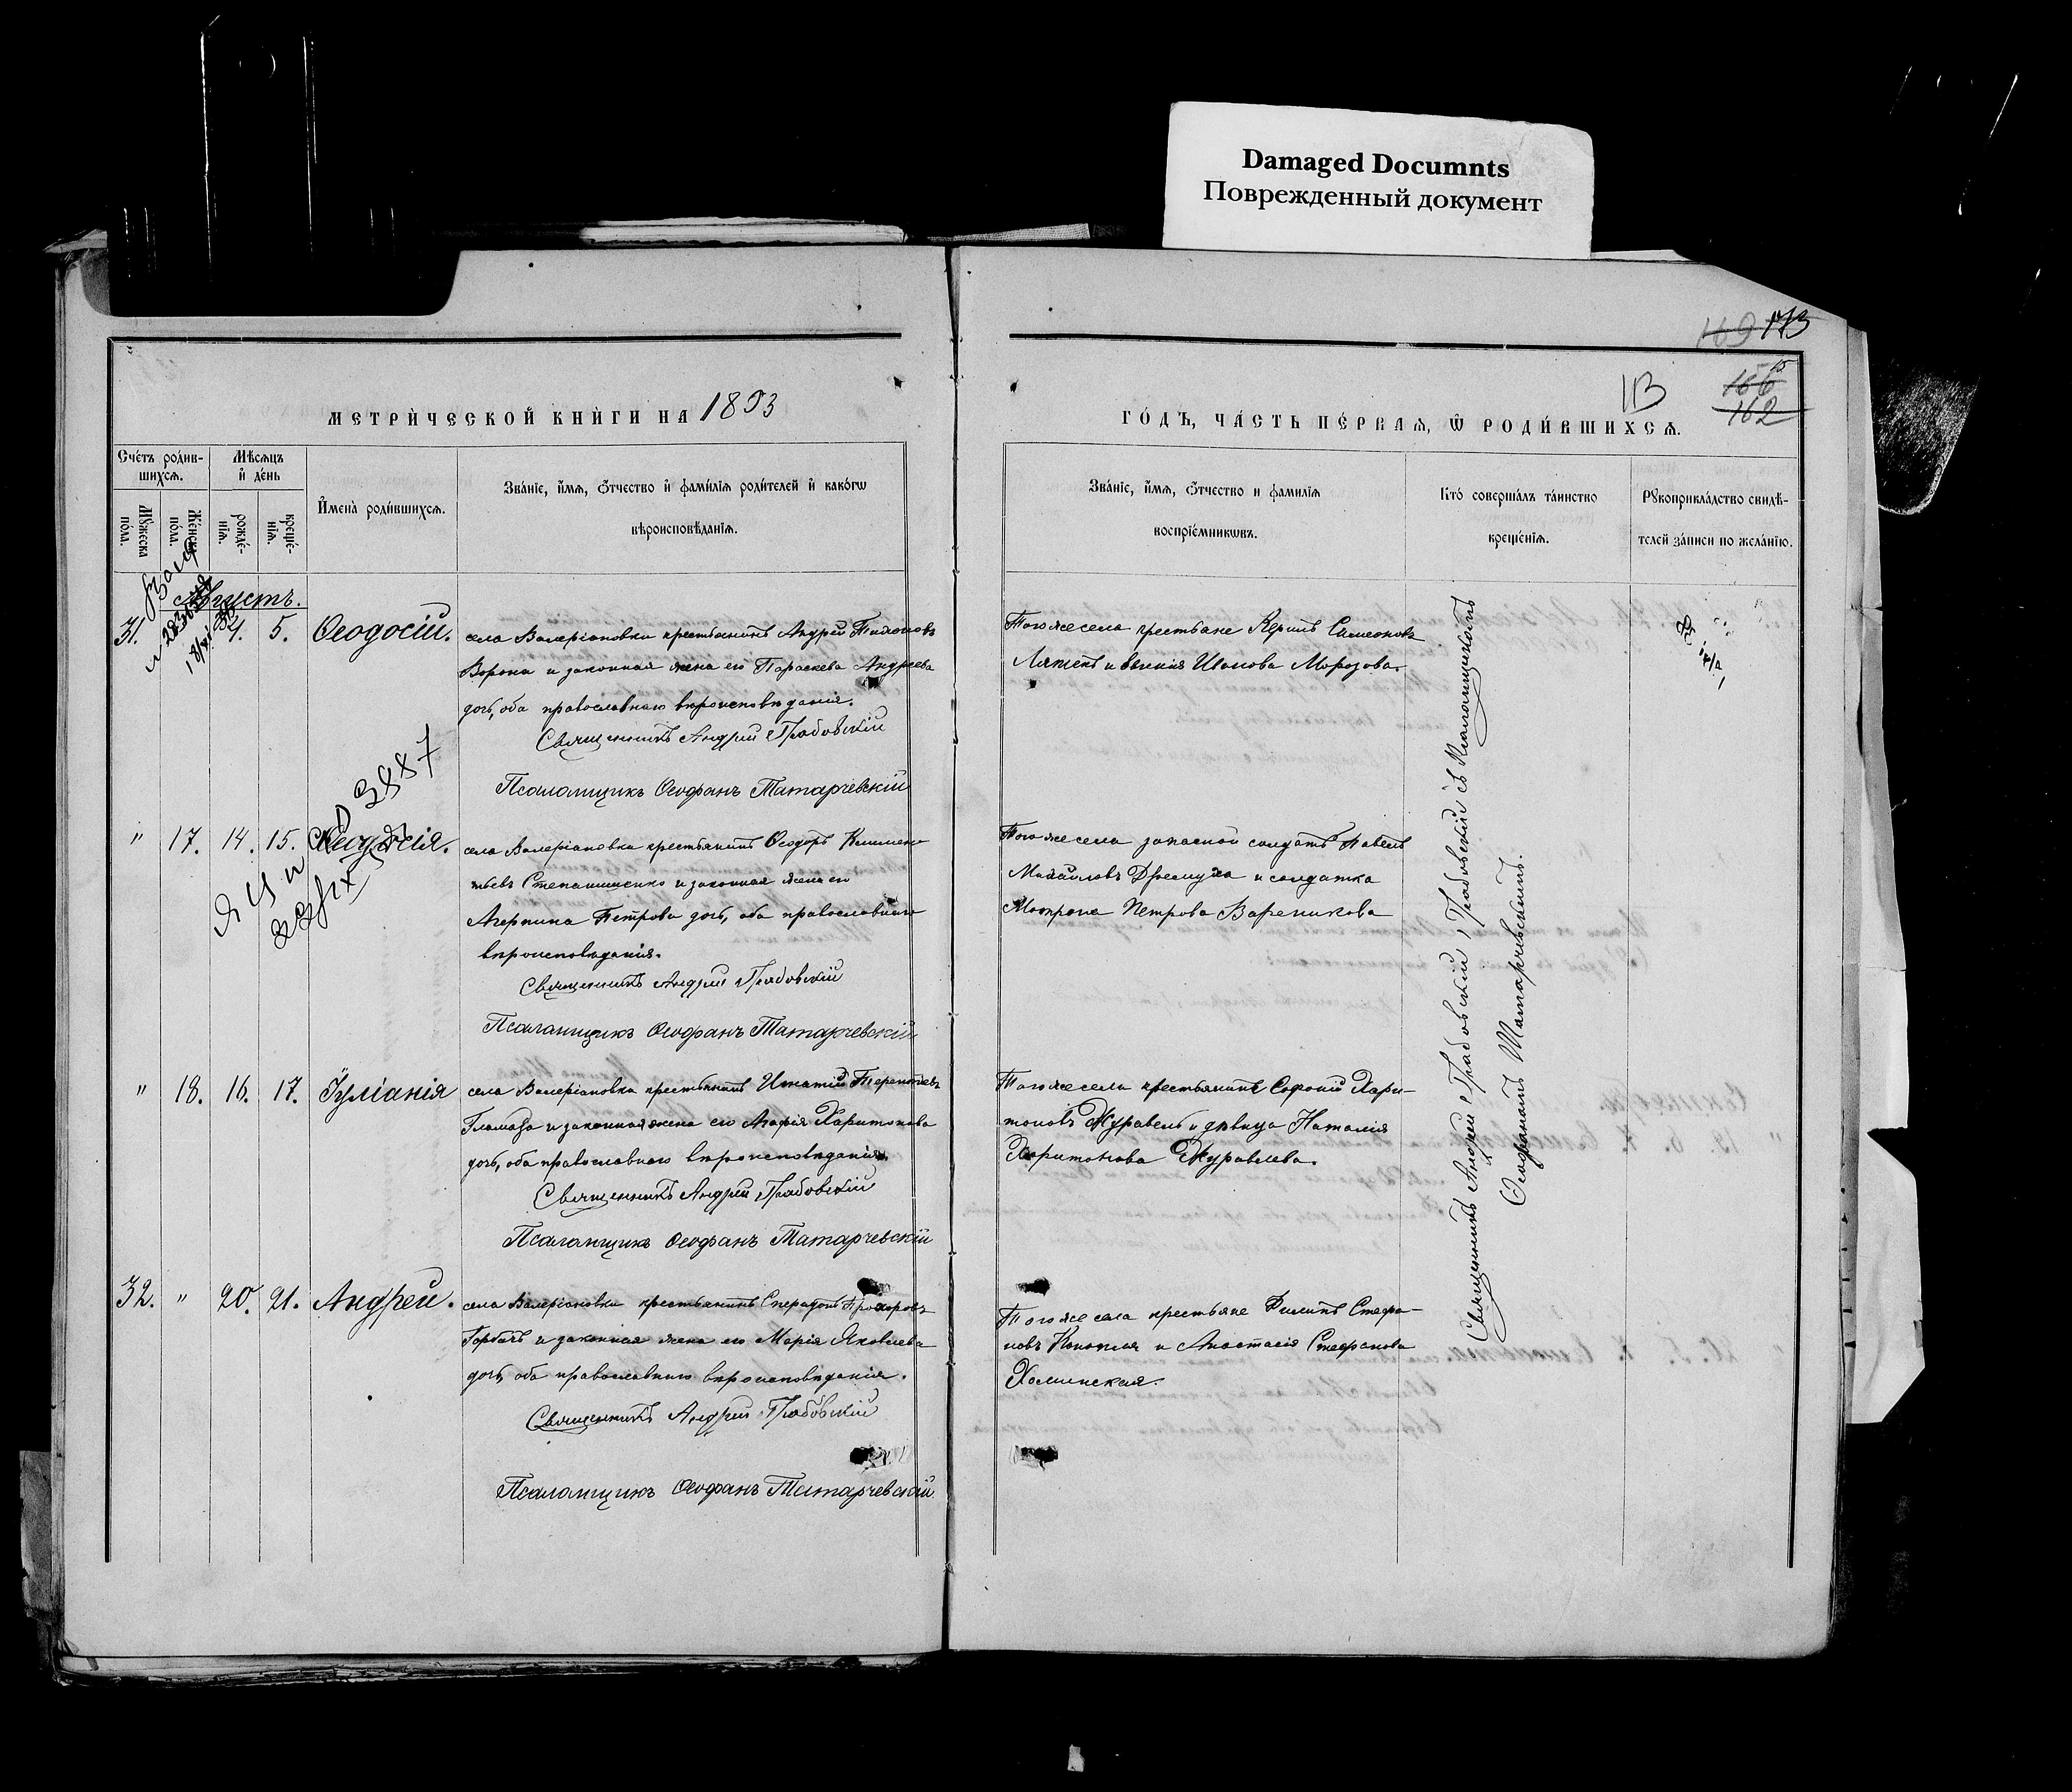 Damaged Documnts
Поврежденный документ
169 173
113
156
162
МЕТРИ́ЧЕСКОЙ КНИ́ГИ НА 1893
ГО́ДЪ, ЧА́СТЬ ПЕ́РВАѦ, Ѡ҃ РОДИ́ВШИХСѦ.
Сче́тъ роди́в-
шихсѧ.
Мꙋ́жеска по́ла.
Же́нска по́ла.
Мѣ́сѧцъ
и҆ де́нь
рожде́-
нїѧ.
креще́-
нїѧ.
И҆мена̀ роди́вшихсѧ.
Зва́нїе, и҆́мѧ, ѻ҆́тчество и҆ фами́лїѧ роди́телей и҆ како́гѡ
вѣроисповѣ́данїѧ.
Зва́нїе, и҆́мѧ, ѻ҆́тчество и фами́лїѧ
воспрїе́мникѡвъ.
Кто̀ соверша́лъ та́инство
креще́нїѧ.
Рꙋкоприкла́дство свидѣ́-
телей за́писи по жела́нїю.
Августъ.
31. 4. 5. Ѳеодосій.
села Валеріановки крестьянинъ Андрей Тихоновъ
Ворона и законная жена его Параскева Андреева
дочь, оба православнаго вѣроисповѣданія.
Священникъ Андрей Грабовскій
Псаломщикъ Ѳеофанъ Татарчевскій
Того же села крестьяне Кирилъ Симеоновъ
Ляшенко Іванова Морозова.
3887
" 17. 14. 15.
села Валеріановки крестьянинъ Ѳеодоръ Климен-
тьевъ Степанищенко и законная жена его
Агрипина Петрова дочь, оба православнаго
вѣроисповѣданія.
Священникъ Андрей Грабовскій
Псаломщикъ Ѳеофанъ Татарчевскій
Того же села запасной солдатъ Павелъ
Михайловъ и солдатка
Матрона Петрова Вареникова
" 18. 16. 17. Іуліанія
села Валеріановка крестьянинъ Игнатій Терентіевъ
Гламазда и законная жена его Агафія Харитонова
дочь, оба православнаго вѣроисповѣданія.
Священникъ Андрей Грабовскій
Псаломщикъ Ѳеофанъ Татарчевскій
Того же села крестьянинъ Софоній Хари-
тоновъ Журавель и дѣвица Наталія
Харитонова Журавлева.
32. " 20. 21. Андрей.
села Валеріановки крестьянинъ Спиридонъ Прохоровъ
Горбачъ и законная жена его Марія Яковлева
дочь, оба православнаго вѣроисповѣданія.
Священникъ Андрей Грабовскій
Псаломщикъ Ѳеофанъ Татарчевскій
Того же села крестьяне Филипъ Стефа-
новъ Конопля и Анастасія Стефанова
Холинская.
Священникъ Андрей Грабовскій съ Псаломщикомъ
Ѳеофаномъ Татарчевскимъ.